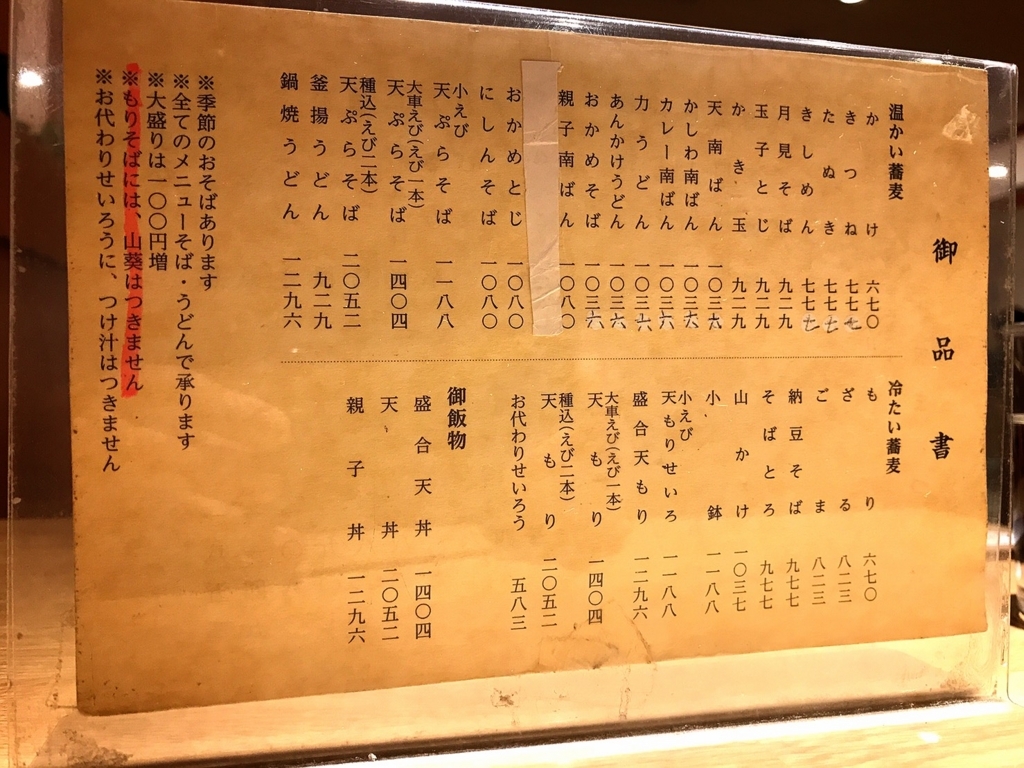 御品書
温かい蕎麦
かけ 六七〇
きつね 七七七
たぬき 七七七
きしめん 七七七
月見そば 九二九
玉子とじ 九二九
かき玉 九二九
天南ばん 一〇三六
かしわ南ばん 一〇三六
カレー南ばん 一〇三六
力うどん 一〇三六
あんかけうどん 一〇三六
おかめそば 一〇三六
親子南ばん 一〇八〇
おかめとじ 一〇八〇
にしんそば 一〇八〇
小えび
天ぷらそば 一一八八
大車えび(えび一本)
天ぷらそば 一四〇四
種込(えび二本)
天ぷらそば 二〇五二
釜揚うどん 九二九
鍋焼うどん 一二九六
冷たい蕎麦
もり 六七〇
ざる 八二三
ごま 八二三
納豆そば 九七七
そばとろ 九七七
山かけ 一〇三七
小鉢 一一八八
小えび
天もりせいろ 一一八八
盛合天もり 一二九六
大車えび(えび一本)
天もり 一四〇四
種込(えび二本)
天もり 二〇五二
お代わりせいろう 五八三
御飯物
盛合天丼 一四〇四
天丼 二〇五二
親子丼 一二九六
※季節のおそばあります
※全てのメニューそば・うどんで承ります
※大盛りは一〇〇円増
※もりそばには、山葵はつきません
※お代わりせいろうに、つけ汁はつきません